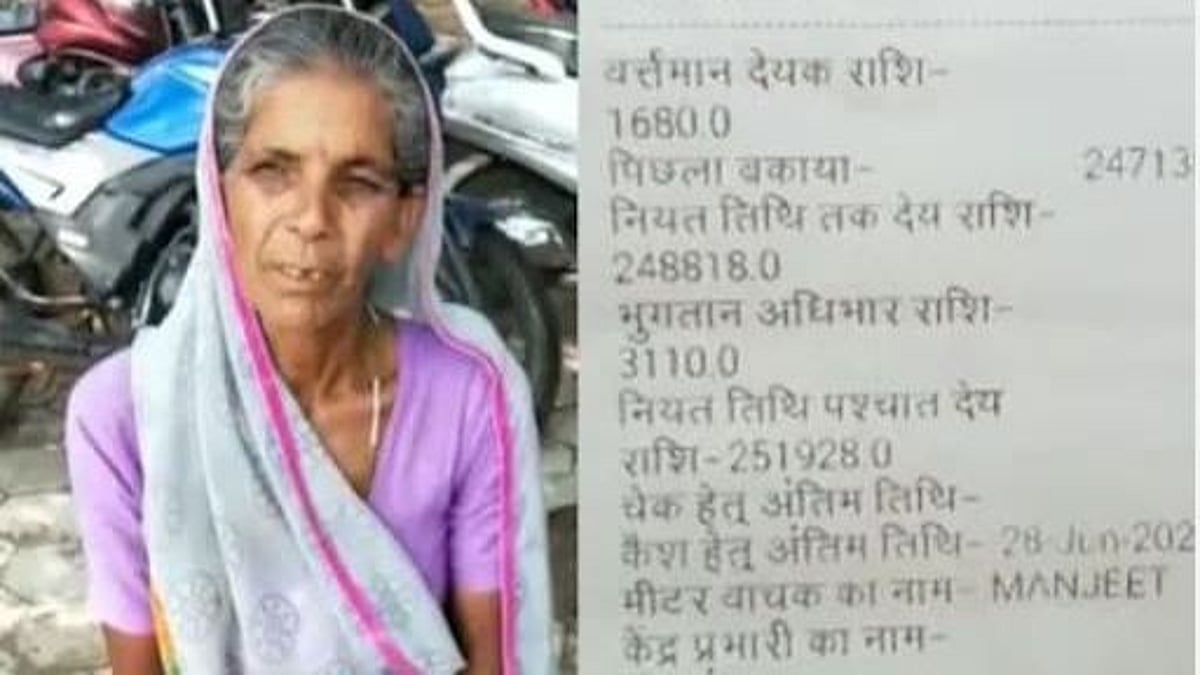 वर्त्तमान देयक राशि-
1680.0
पिछला बकाया- 24713
नियत तिथि तक देय राशि-
248818.0
भुगतान अधिभार राशि-
3110.0
नियत तिथि पश्चात देय
राशि-251928.0
चेक हेतू अंतिम तिथि-
कैश हेतू अंतिम तिथि- 28-Jun-202
मीटर वाचक का नाम- MANJEET
केंद्र प्रभारी का नाम-